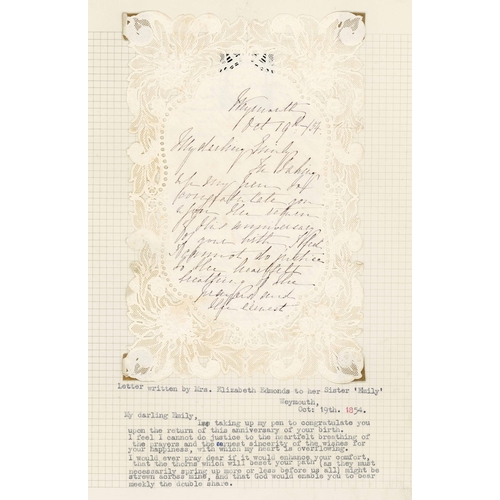 Weymouth
Oct 19th /54.
My darling Emily,
In taking
up my pen to
congratulate you
upon the return
of this anniversary
of your birth I feel
I cannot do justice
to the heartfelt
breathing of the
prayers and
the earnest
Letter written by Mrs. Elizabeth Edmonds to her Sister 'Emily'
Weymouth,
Oct: 19th. 1854.
My darling Emily,
taking up my pen to congratulate you
upon the return of this anniversary of your birth.
I feel I cannot do justice to the heartfelt breathing of
the prayers and the earnest sincerity of the wishes for
your happiness, with which my heart is overflowing.
I would ever pray dear if it would enhance your comfort,
that the thorns which will beset your path (as they must
necessarily spring up more or less before us all) might be
strewn across mine, and that God would enable you to bear
meekly the double share.